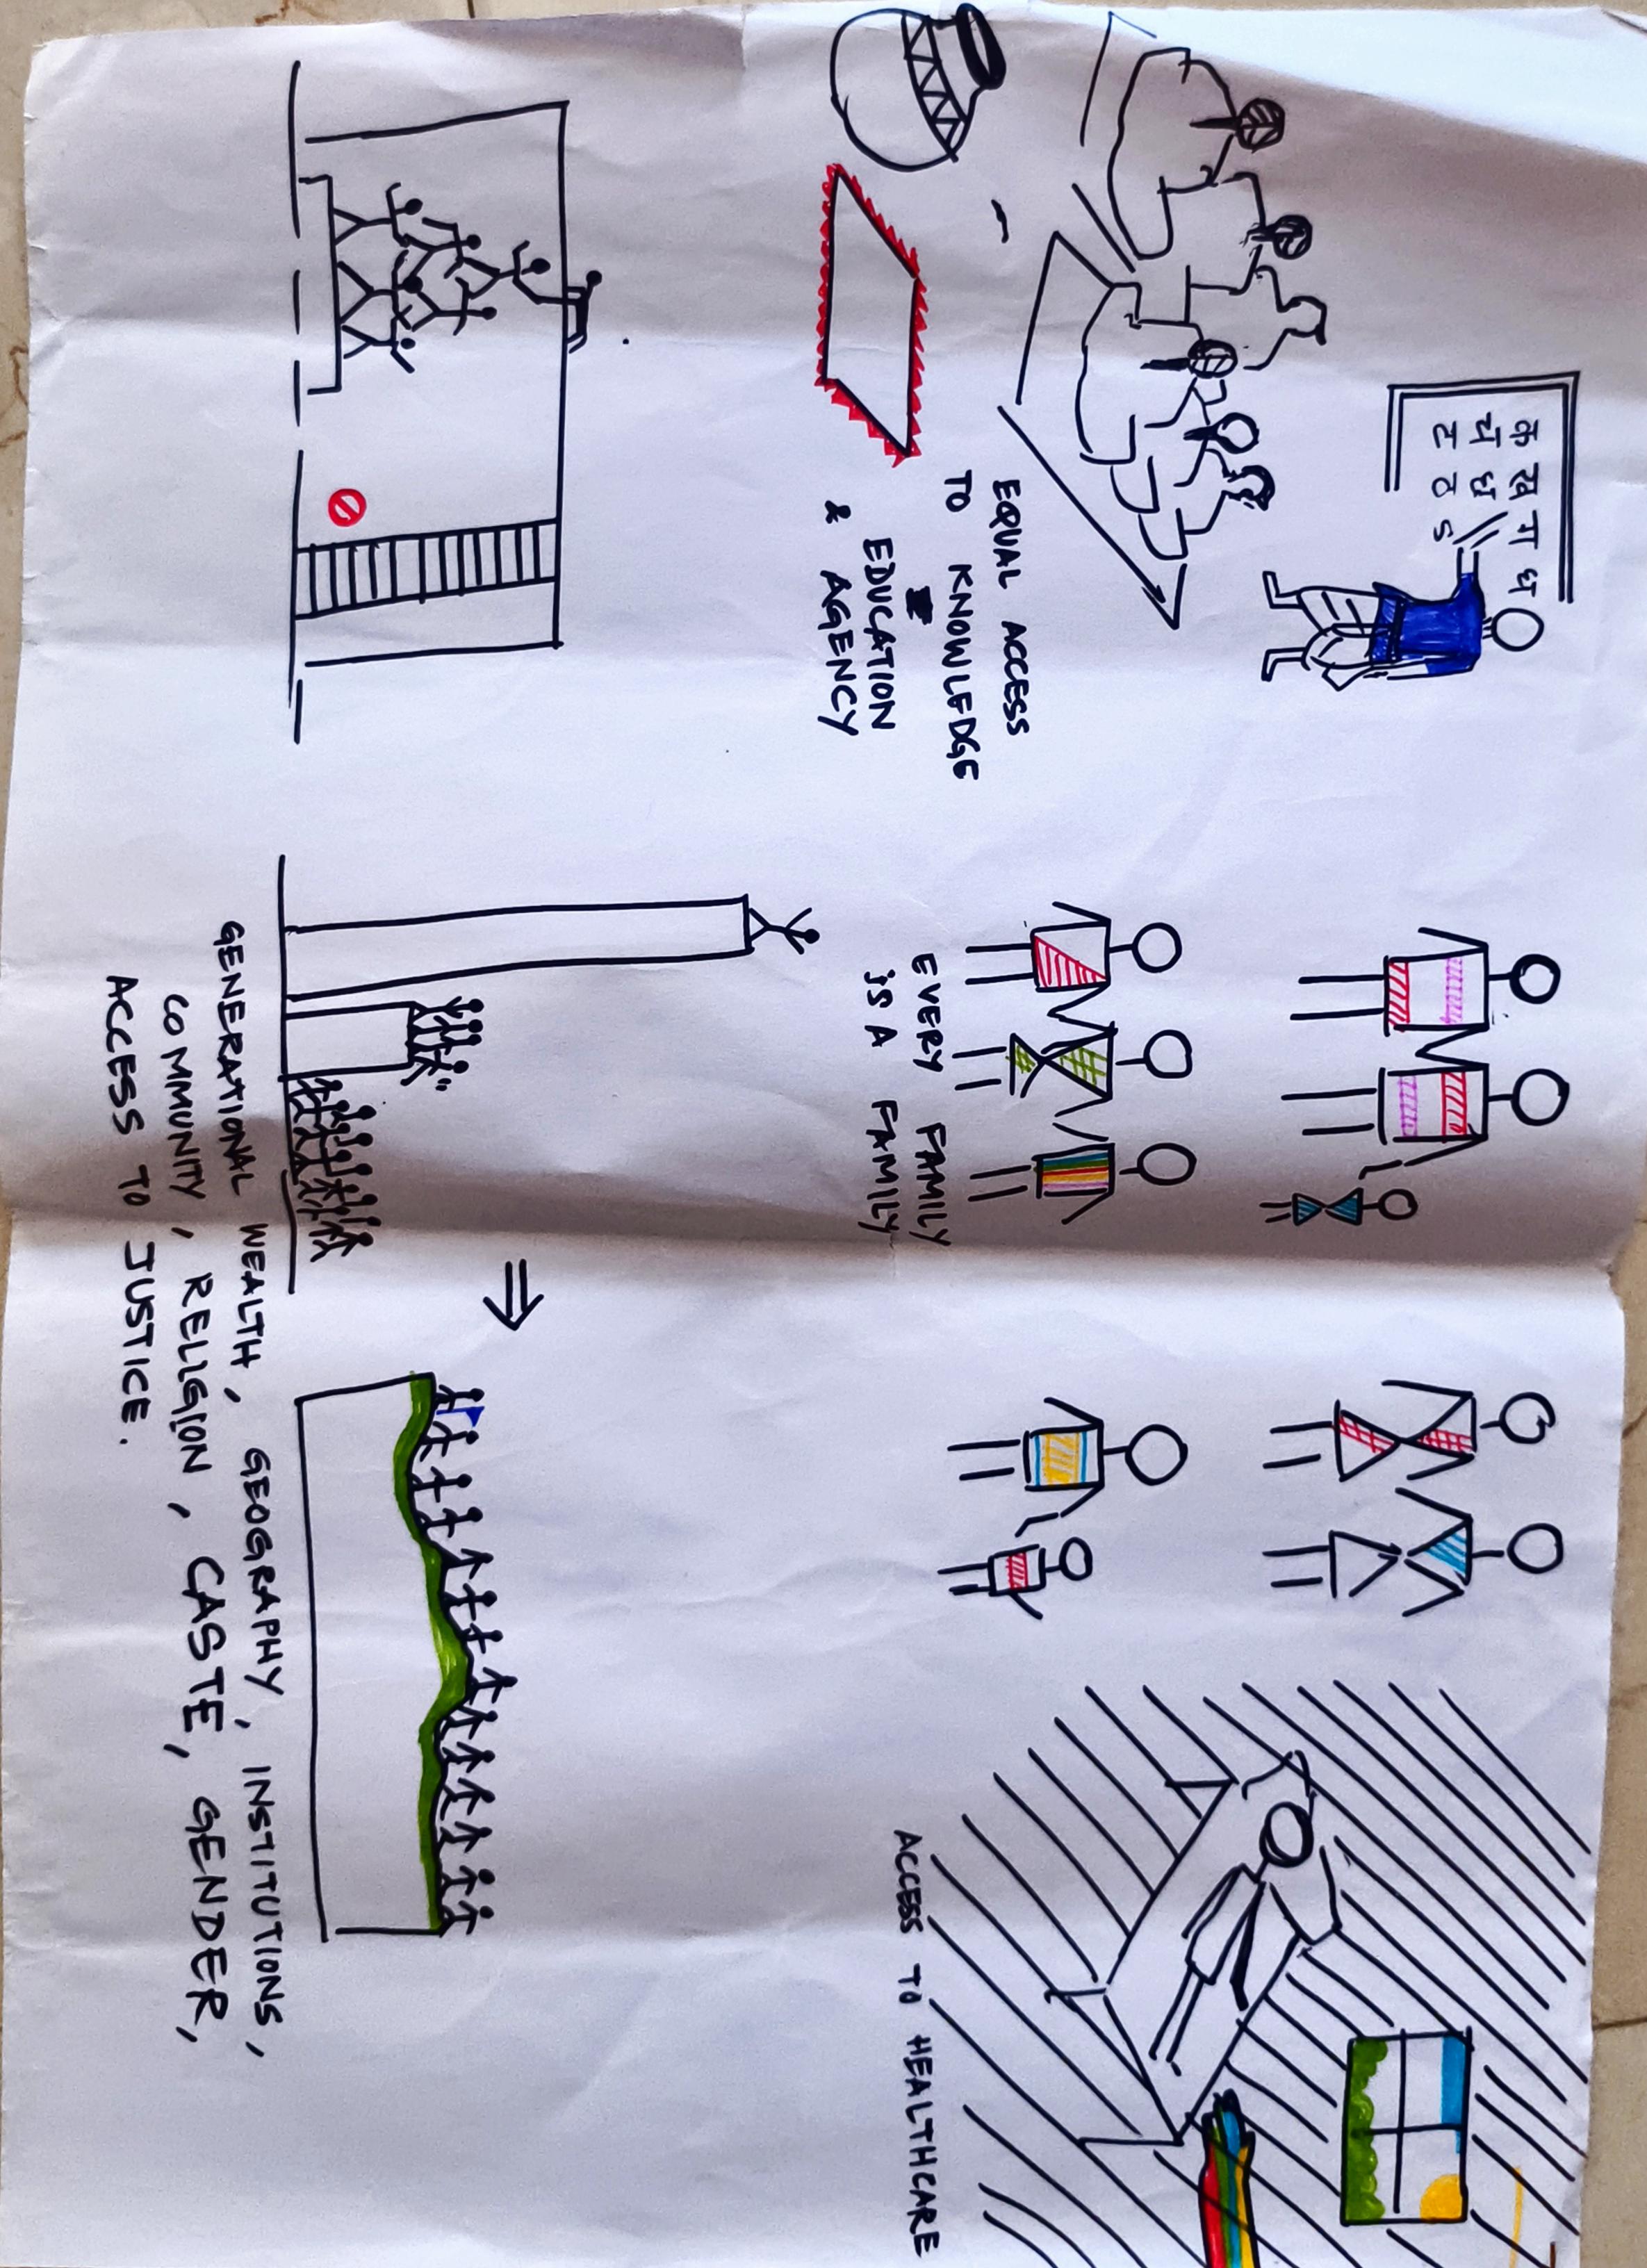 क ख ग घ
च छ
ट ठ ड
EQUAL ACCESS
TO KNOWLEDGE
EDUCATION
& AGENCY
EVERY FAMILY
IS A FAMILY
ACCESS TO HEALTHCARE
GENERATIONAL WEALTH, GEOGRAPHY, INSTITUTIONS,
COMMUNITY, RELIGION, CASTE, GENDER,
ACCESS TO JUSTICE.